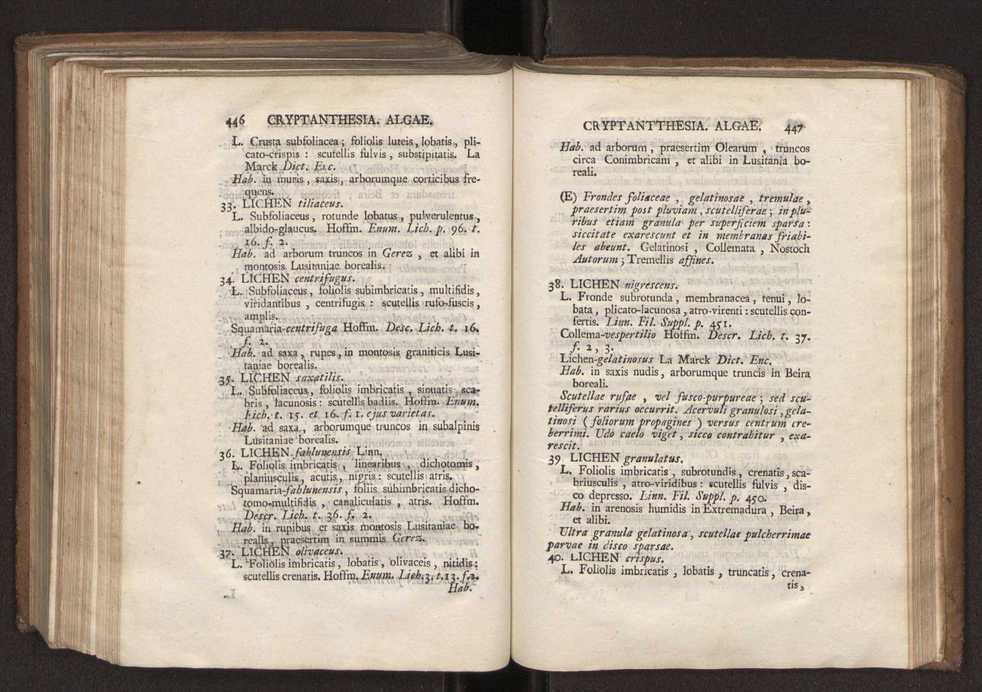 446 CRYPTANTHESIA. ALGAE.
L. Crusta subfoliacea; foliolis luteis, lobatis, pli-
cato-crispis : scutellis fulvis, substipitatis. La
Marck Dict. Enc.
Hab. in muris, saxis, arborumque corticibus fre-
quens.
33. LICHEN tiliaceus.
L. Subfoliaceus, rotunde lobatus, pulverulentus,
albido-glaucus. Hoffm. Enum. Lich. p. 96. t.
16. f. 2.
Hab. ad arborum truncos in Gerez, et alibi in
montosis Lusitaniae borealis.
34. LICHEN centrifugus.
L. Subfoliaceus, foliolis subimbricatis, multifidis,
viridantibus, centrifugis : scutellis rufo-fuscis,
amplis.
Squamaria-centrifuga Hoffm. Desc. Lich. t. 16.
f. 2.
Hab. ad saxa, rupes, in montosis graniticis Lusi-
taniae borealis.
35. LICHEN saxatilis.
L. Subfoliaceus, foliolis imbricatis, sinuatis, sca-
bris, lacunosis : scutellis badiis. Hoffm. Enum.
Lich. t. 15. et 16. f. 1. ejus varietas.
Hab. ad saxa, arborumque truncos in subalpinis
Lusitaniae borealis.
36. LICHEN fahlunensis Linn.
L. Foliolis imbricatis, linearibus, dichotomis,
planiusculis, acutis, nigris : scutellis atris.
Squamaria-fahlunensis, foliis subimbricatis dicho-
tomo-multifidis, canaliculatis, atris. Hoffm.
Descr. Lich. t. 36. f. 2.
Hab. in rupibus et saxis montosis Lusitaniae bo-
realis, praesertim in summis Gerez.
37. LICHEN olivaceus.
L. Foliolis imbricatis, lobatis, olivaceis, nitidis;
scutellis crenatis. Hoffm. Enum. Lich. 3, t. 13. f. 2.
Hab.
CRYPTANTTHESIA. ALGAE. 447
Hab. ad arborum, praesertim Olearum, truncos
circa Conimbricam, et alibi in Lusitania bo-
reali.
(E) Frondes foliaceae, gelatinosae, tremulae,
praesertim post pluviam, scutelliferae; in plu-
ribus etiam granula per superficiem sparsa :
siccitate exarescunt et in membranas friabi-
les abeunt. Gelatinosi, Collemata, Nostoch
Autorum; Tremellis affines.
38. LICHEN nigrescens.
L. Fronde subrotunda, membranacea, tenui, lo-
bata, plicato-lacunosa, atro-virenti : scutellis con-
fertis. Linn. Fil. Suppl. p. 451.
Collema-vespertilio Hoffm. Descr. Lich. t. 37.
f. 2, 3.
Lichen-gelatinosus La Marck Dict. Enc.
Hab. in saxis nudis, arborumque truncis in Beira
boreali.
Scutellae rufae, vel fusco-purpureae; sed scu-
telliferus rarius occurrit. Acervuli granulosi, gela-
tinosi (foliorum propagines) versus centrum cre-
berrimi. Udo caelo viget, sicco contrahitur, exa-
rescit.
39 LICHEN granulatus.
L. Foliolis imbricatis, subrotundis, crenatis, sca-
briusculis, atro-viridibus : scutellis fulvis, dis-
co depresso. Linn. Fil. Suppl. p. 450.
Hab. in arenosis humidis in Extremadura, Beira,
et alibi.
Ultra granula gelatinosa, scutellae pulcherrimae
parvae in disco sparsae.
40. LICHEN crispus.
L. Foliolis imbricatis, lobatis, truncatis, crena-
tis,